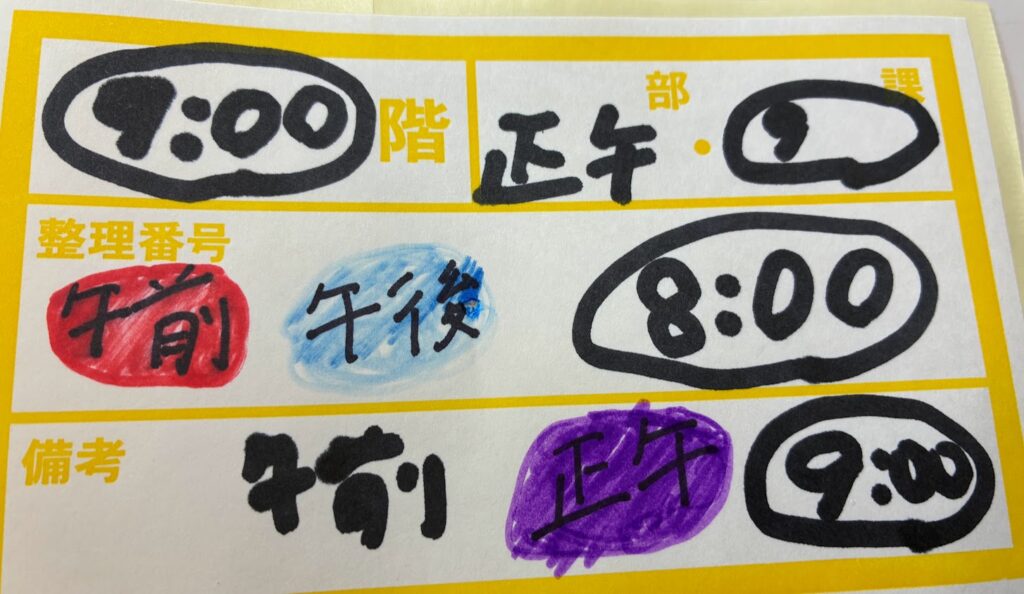 9:00 階 部・課
正午 9
整理番号
午前 午後 8:00
備考
午前 正午 9:00